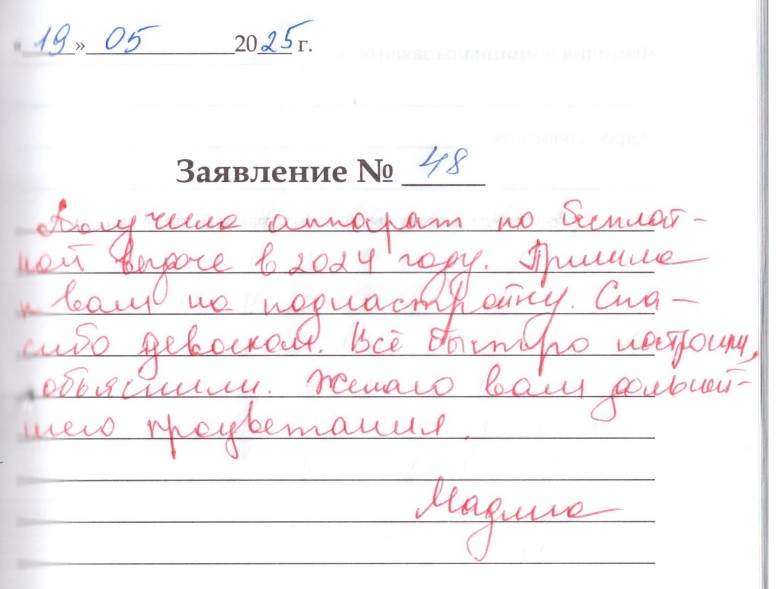 «19» 05 2025 г.
Заявление № 48
Получила аппарат по бесплат-
ной выдаче в 2024 году. Пришла
к вам на поднастройку. Спа-
сибо девочкам. Всё быстро настроили,
объяснили. Желаю вам дальней-
шего процветания.
Мадина